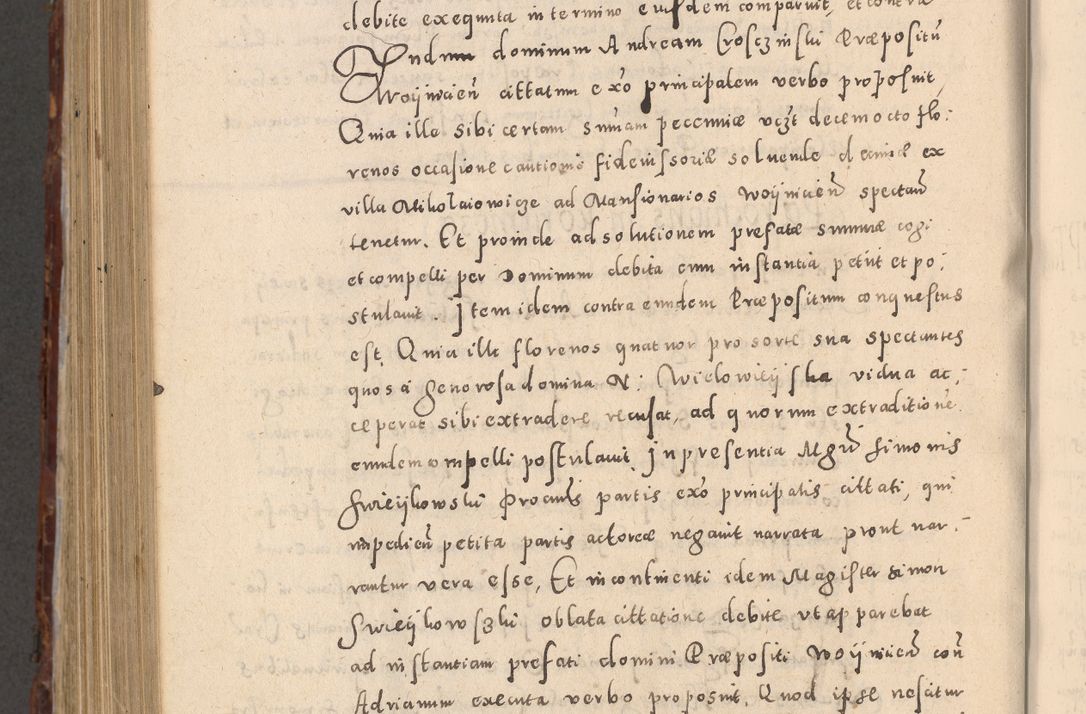 debite exequuta in termino eiusdem comparuit, et contra
Vndum dominum Andream Crosczinski Præpositū
Woijnicień cittatum ex͂o principalem verbo proposuit,
Quia ille sibi certam sum̄am pecuniæ vcz͂t decem octo flo:
renos occasione cautionis fideiussoriæ soluende decimæ ex
villa Mikolaiowicze ad Mansionarios Woijnicień spectań
tenetur. Et proinde ad solutionem prefatæ summæ cogi
et compelli per Dominum debita cum instantia petiit et po:
stulauit. Item idem contra eundem Præpositum conquestus
est, Quia ille florenos quatuor pro sorte sua spectantes
quos a generosa domina N: Wielowieijska vidua ac:
ceperat sibi extradere recusat, ad quorum extraditione
eundem compelli postulauit, In presentia Mgr̄i Simonis
Swieijkowski Procurīs partis ex͂o principalis cittati, qui
impedień petita partis actoreæ negauit narrata pront nar:
rantur vera esse, Et in continenti idem Magister Simon
Swieijkowszki oblata cittatione debite vt apparebat
ad instantiam prefati domini Præpositi Woijnicień coñ
Adrianum executa verbo proposuit, Quod ipse nescitur